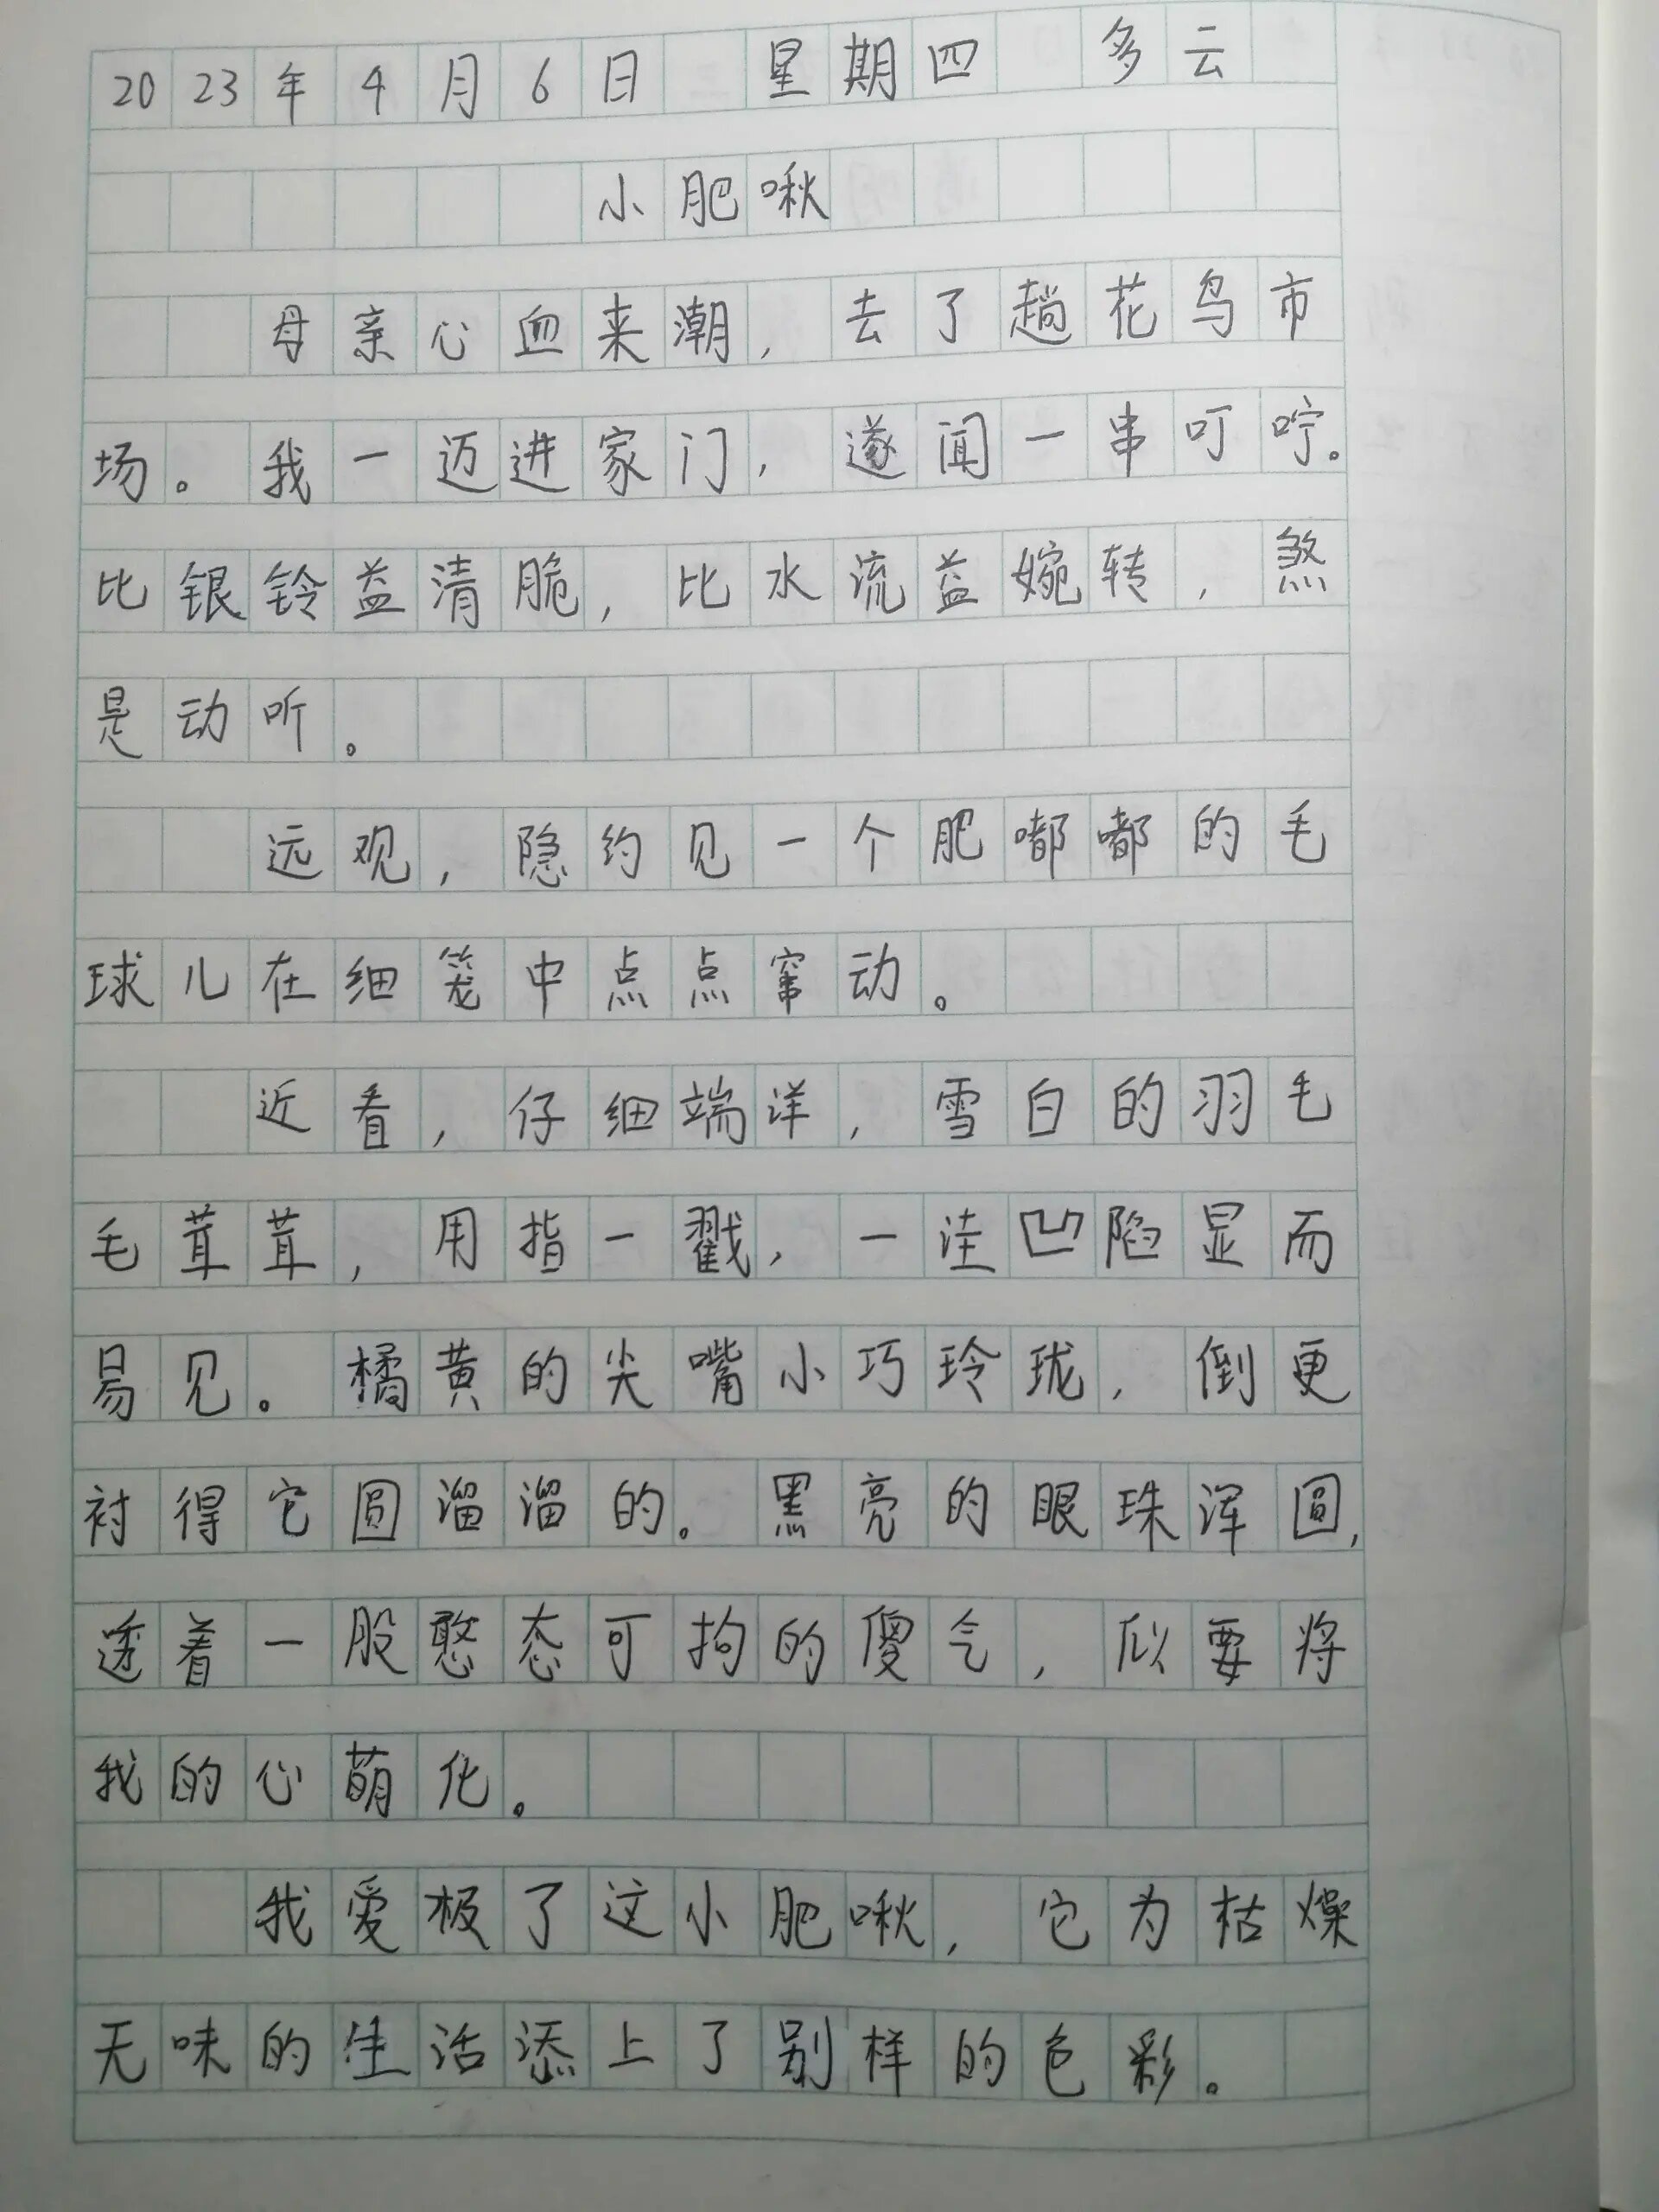 2023年4月6日 星期四 多云
小肥啾
母亲心血来潮，去了趟花鸟市
场。我一迈进家门，遂闻一串叮咛。
比银铃益清脆，比水流益婉转，煞
是动听。
远观，隐约见一个肥嘟嘟的毛
球儿在细笼中点点窜动。
近看，仔细端洋，雪白的羽毛
毛茸茸，用指一戳，一洼凹陷显而
易见。橘黄的尖嘴小巧玲珑，倒更
衬得它圆溜溜的。黑亮的眼珠浑圆，
透着一股憨态可拘的傻气，似要将
我的心萌化。
我爱极了这小肥啾，它为枯燥
无味的生活添上了别样的色彩。